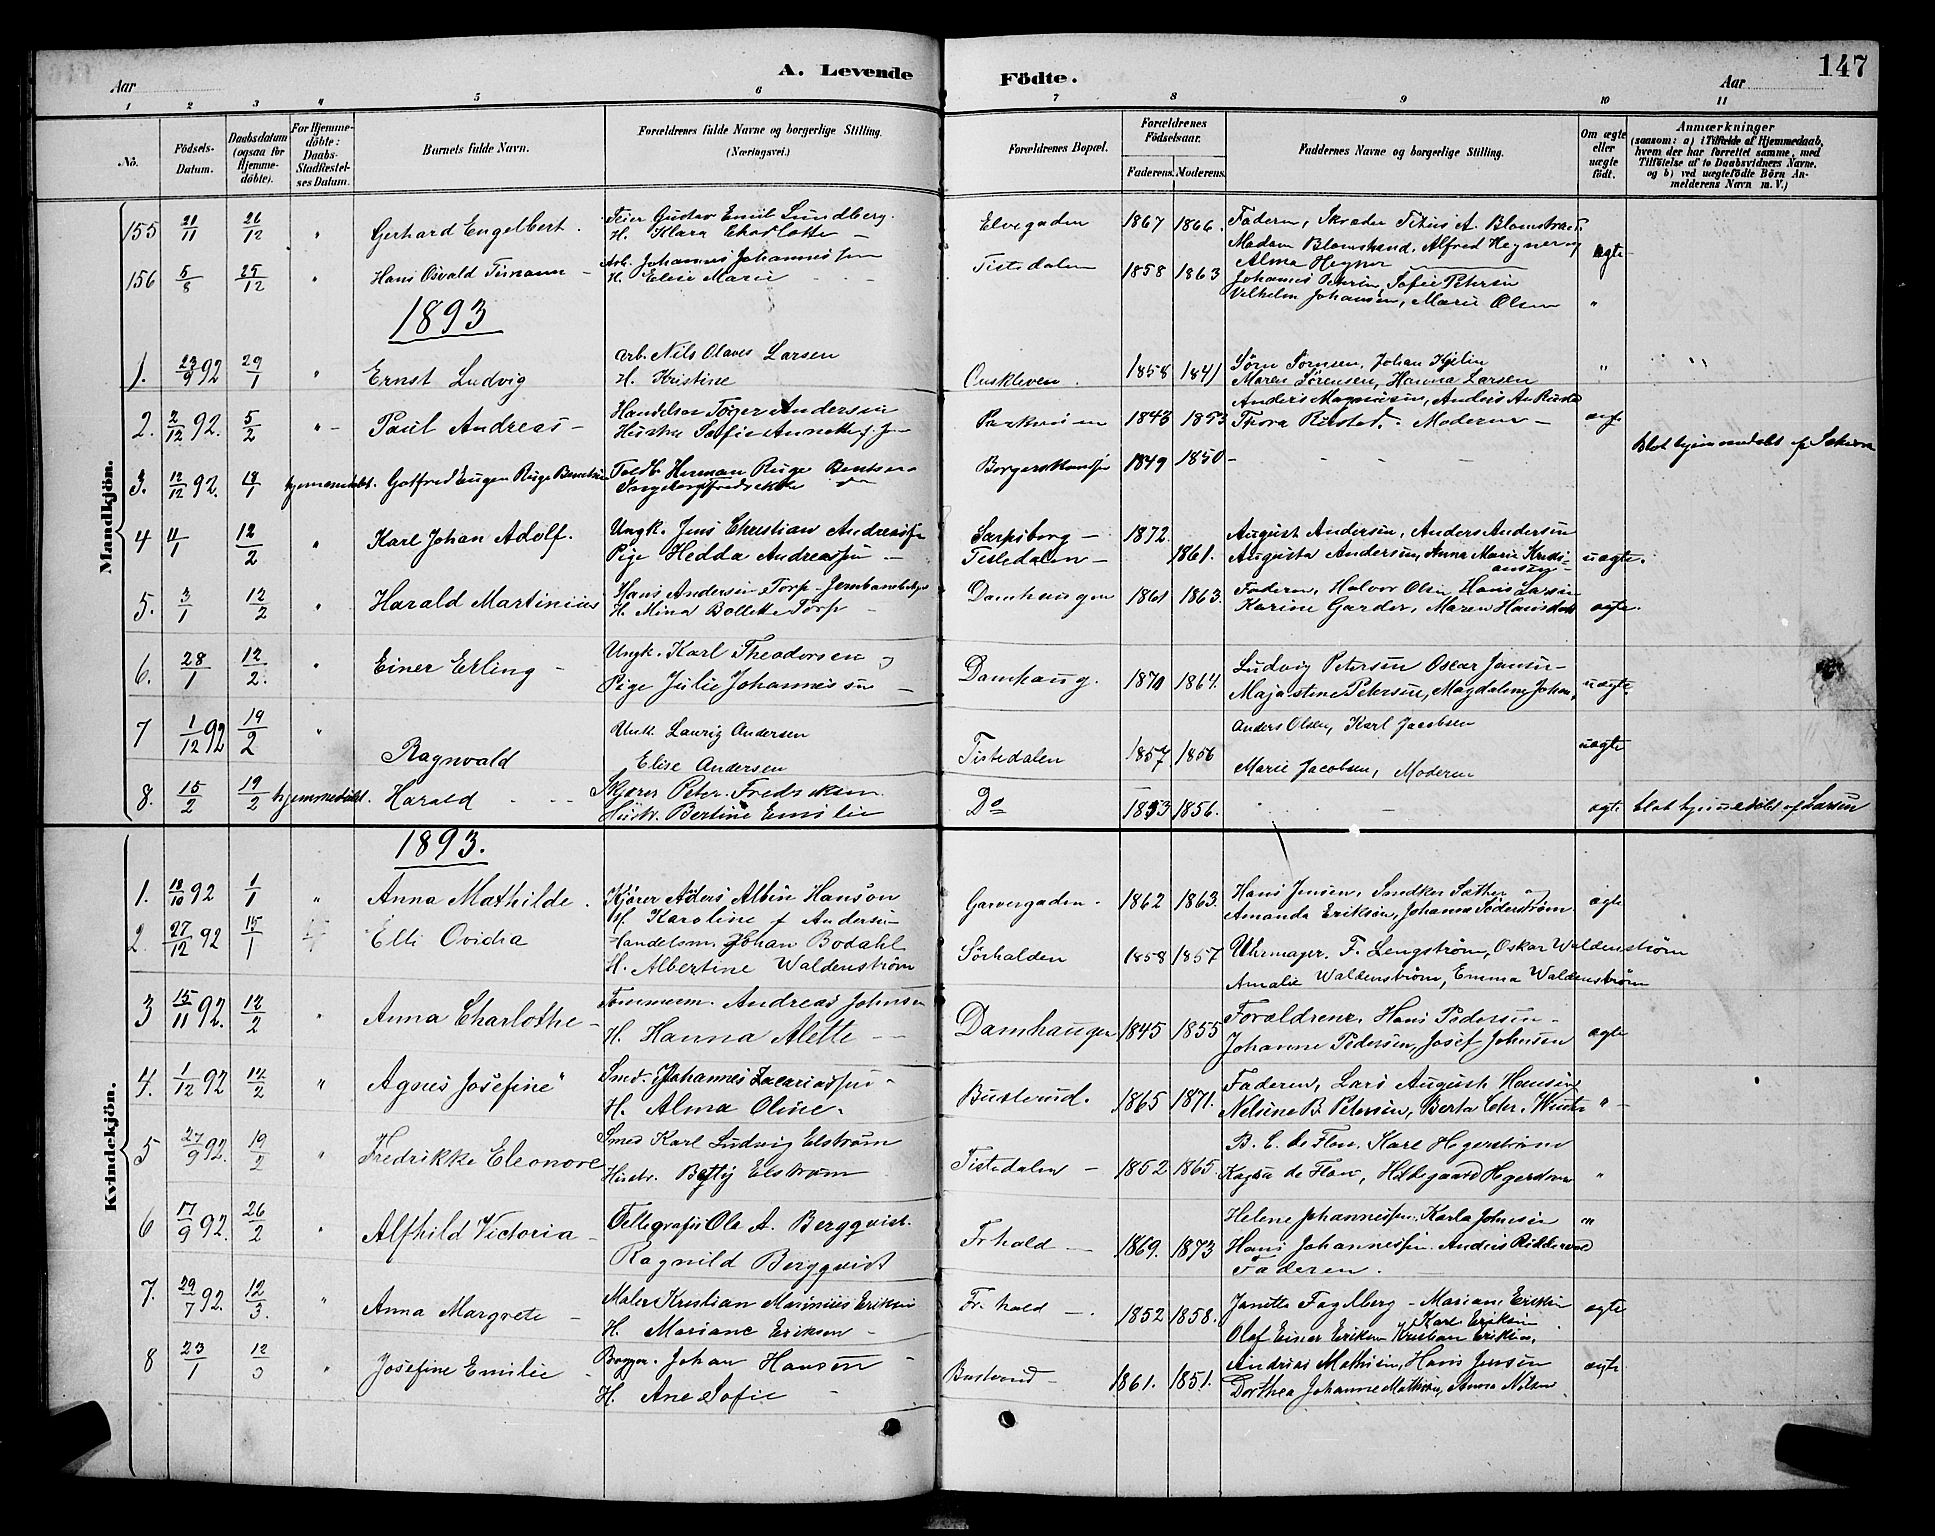 A. Levende Födte.
147
Aar
Aar
1 2 3 4 5 6 7 8 9 10 11
No.
Födsels-Datum.
Daabsdatum (ogsaa for Hjemmedöbte).
For Hjemmedöbte: Daabs-Stadfæstelses Datum.
Barnets fulde Navn.
Forældrenes fulde Navne og borgerlige Stilling. (Næringsvei.)
Forældrenes Bopæl.
Forældrenes Födselsaar.
Faderens. Moderens.
Faddernes Navne og borgerlige Stilling.
Om ægte eller uægte födt.
Anmærkninger
(saasom: a) i Tilfælde af Hjemmedaab, hvem der har forrettet samme, med Tilföielse af to Daabsvidners Navne, og b) ved uægtefödte Börn Anmelderens Navn m. V.)
Mandkjön.
155 21/11 26/12 " Gerhard Engelbert. Feier Gustav Emil Lundberg. Elvegaden 1867 1866. Faderen, Skræder Titius A. Blomstrand
H. Klara Charlotte — Madam Blomstrand, Alfred Hegner og ægte
Alma Hegner
156 5/8 25/12 " Hans Osvald Timann — Arb. Johannes Johannessen Tistedalen 1858 1863 Johannes Petersen, Sofie Petersen
H. Elise Marie Vilhelm Johansen, Marie Olsen "
1893
1. 23/9 92 29/1 " Ernst Ludvig Arb. Nils Olaves Larsen 1858 1841 Sørn Sørnsen, Johan Kjelin "
H. Kristine Maren Sørensen, Hanna Larsen
2. 2/12 92. 5/2 " Paul Andreas — Handelsm Tøger Andersen 1843 1853. Anders Magnusen, Anders An Rustad
Hustru Sofie Annette f. J Thora Rustad. Moderen — ægt
3. 12/12 92. 18/1 hjemmedøbt. Gotfred Eugen Ruge Berntsen Toldb. Herman Ruge Berntsen 1849 1850 — Blot hjemmedøbt af
Ingeborg Fredrikke do
4 4/1 12/2 " Karl Johan Adolf. Ungk. Jens Christian Andreassen Sarpsborg — 1872. August Andersen, Anders Andersen
Pige Hedda Andreassen — Tistedalen — 1861. Augusta Andersen, Anna Marie Kristiansen uægte.
5. 3/1 12/2 " Harald Martinius Hans Andersen Torp Damhaugen 1861 1863. Faderen, Halvor Olsen Hans Larsen
H. Mina Bollette Torp — Karine Garder, Maren ægte.
6. 28/1 12/2. " Einer Erling — Ungk. Karl Theodorsen og Damhaug. 1870 1864. Ludvig Petersen Oscar Jansen —
Pige Julie Johannessen — Majastine Petersen, Magdalene Johan. uægte.
7 1/12 92 19/2 " Ragnvald Unk. Lauriz Andersen Tistedalen 1857 1856 Anders Olsen, Karl Jacobsen
Elise Andersen Marie Jacobsen, Moderen uægte
8. 15/2 19/2 hjemmedøbt. Harald Skjærer Peter Fredriksen Do 1853 1856. ægte blot hjemmedøbt af Larsen
Hustr. Bertine Emilie
Kvindekjön.
1893.
1. 18/10 92 1/1 " Anna Mathilde. Kjører Aders Albin Hanson Garvergaden. 1862 1863. Hans Jensen, Snedker Sæther og
H. Karoline f Andersen Amanda Erikson, Johanna Söderstrøm ægte
2. 27/12 92 15/1 Elli Ovidia Handelsm. Johan Bodahl Sørhalden 1858 1857 Uhrmager. F. Lengstrøm, Oskar Waldenstrøm
H. Albertine Waldenstrøm Amalie Waldenstrøm, Emma Waldenstrøm
3 15/11 92. 12/2 " Anna Charlothe — Tømmerm. Andreas Johnsen Damhaugen 1845 1855 Forældrene, Hans Pedersen —
H. Hanna Alette — Johanne Pedersen, Josef Johnsen ægte
4. 1/12 92 12/2 " Agnes Josefine " Smed. Johannes Zacariassen — Busterud. 1865 1871. Faderen, Lars August Hansen
H. Alma Oline. Nelsine B. Petersen, Berta Chr. Winter " —
5 27/9 92. 19/2 " Fredrikke Eleonore Smed Karl Ludvig Elstrøm Tistedalen — 1852 1865. B. C. de Flon, Karl Hegerstrøm
Hustr. Betty Elstrøm Kagsa de Flon, Hildegaard Hegerstrøm "
6 17/9 92. 26/2 " Alfhild Victoria — Tellegrafis Ole A. Bergqvist. Fr hald — 1869. 1873 Helene Johannessen, Karla Johnsen "
Ragnild Bergqvist Hans Johannessen. Andreas Riddervold
Faderen.
7. 29/7 92. 12/3. " Anna Margrete — Maler Kristian Marinius Eriksen Fr. hald —. 1852 1858. Janetta Fagelberg — Mariane Eriksen ægte
H. Mariane Eriksen — Karl Eriksen
Olaf Einer Eriksen Kristian Eriksen,
8 23/1 12/3 " Josefine Emilie — Bagger. Johan Hansen — Busterud — 1861. 1851. Andreas Mathisen, Hans Jensen ægte
H. Ane Sofie — Dorthea Johanne Mathisen, Anna Nilsen